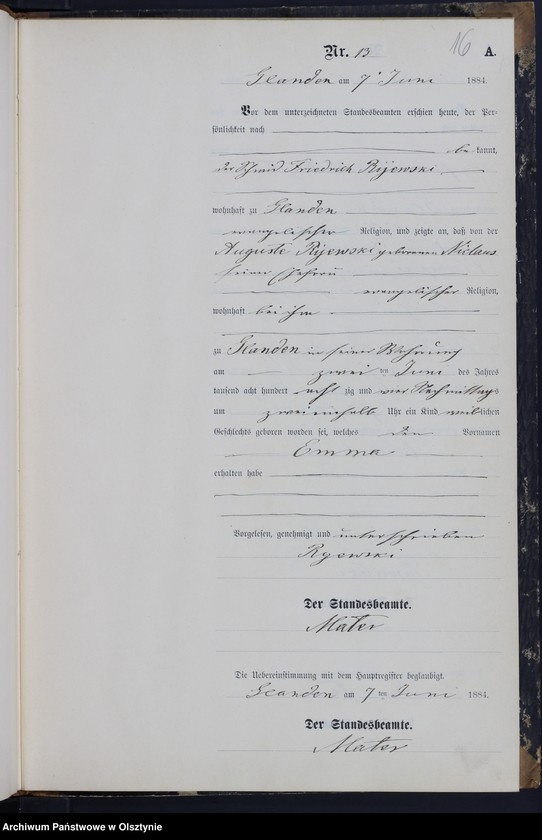 Nr. 13
16
A.
Glanden am 7 Juni 1884.
Vor dem unterzeichneten Standesbeamten erschien heute, der Per-
sönlichkeit nach
be kannt,
der Schmid Friedrich Rijewski
wohnhaft zu Glanden
evangelischer Religion, und zeigte an, daß von der
Auguste Rijewski geborenen Niclaus
seiner Ehefrau
evangelischer Religion,
wohnhaft bei ihm
zu Glanden in seiner Wohnung
am zwei ten Juni des Jahres
tausend acht hundert acht zig und vier Nachmittags
um zweieinhalb Uhr ein Kind weib lichen
Geschlechts geboren worden sei, welches den Vornamen
Emma
erhalten habe
Vorgelesen, genehmigt und unterschrieben
Ryewski
Der Standesbeamte.
Mater
Die Uebereinstimmung mit dem Hauptregister beglaubigt.
Glanden am 7 ten Juni 1884.
Der Standesbeamte.
Mater
Archiwum Państwowe w Olsztynie